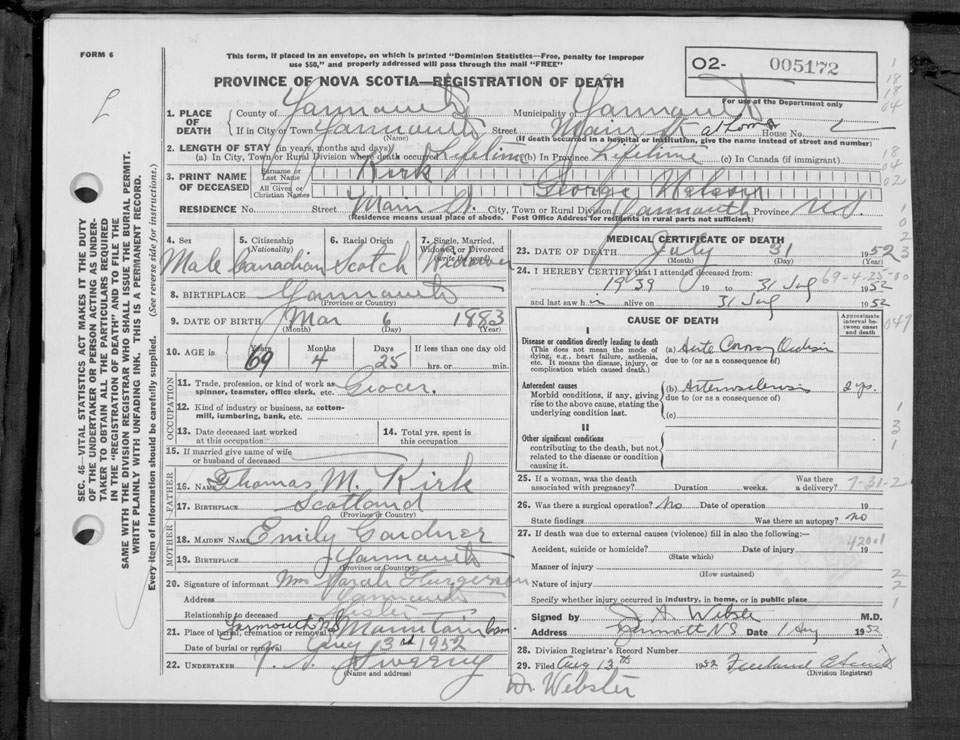 FORM 6
This form, if placed in an envelope, on which is printed "Dominion Statistics—Free, penalty for improper
use $50," and properly addressed will pass through the mail "FREE"
PROVINCE OF NOVA SCOTIA—REGISTRATION OF DEATH
O2- 005172
For use of the Department only
1. PLACE OF DEATH
County of Yarmouth Municipality of Yarmouth
If in City or Town Yarmouth Street Main St at home House No.
(Name) (If death occurred in a hospital or institution, give the name instead of street and number)
2. LENGTH OF STAY (in years, months and days)
(a) In City, Town or Rural Division where death occurred Lifetime (b) In Province Lifetime (c) In Canada (if immigrant)
3. PRINT NAME OF DECEASED
Surname or Last Name Kirk
All Given or Christian Names George Nelson
RESIDENCE No. Street Main St. City, Town or Rural Division Yarmouth Province N.S.
(Residence means usual place of abode. Post Office Address for residents in rural parts not sufficient)
4. Sex Male
5. Citizenship (Nationality) Canadian
6. Racial Origin Scotch
7. Single, Married, Widowed or Divorced (write the word) Widower
8. BIRTHPLACE Yarmouth
(Province or Country)
9. DATE OF BIRTH Mar 6 1883
(Month) (Day) (Year)
10. AGE in Years 69 Months 4 Days 25 If less than one day old
hrs. or min.
OCCUPATION
11. Trade, profession, or kind of work as spinner, teamster, office clerk, etc. Grocer.
12. Kind of industry or business, as cotton-mill, lumbering, bank, etc.
13. Date deceased last worked at this occupation
14. Total yrs. spent in this occupation
15. If married give name of wife or husband of deceased
FATHER
16. Name Thomas M. Kirk
17. BIRTHPLACE Scotland
(Province or Country)
MOTHER
18. MAIDEN NAME Emily Gardner
19. BIRTHPLACE Yarmouth
(Province or Country)
20. Signature of informant Mrs Sarah
Address Yarmouth
Relationship to deceased Sister
21. Place of burial, cremation or removal Yarmouth N.S. Mountain Cem
Date of burial or removal Aug 3rd 1952
22. UNDERTAKER Sweeny
(Name and address)
MEDICAL CERTIFICATE OF DEATH
23. DATE OF DEATH July 31 1952
(Month) (Day) (Year)
24. I HEREBY CERTIFY that I attended deceased from: 69-4-25-00
1939 19 to 31 July 1952
and last saw h im alive on 31 July 1952
CAUSE OF DEATH
Approximate interval between onset and death
I
Disease or condition directly leading to death
(This does not mean the mode of dying, e.g., heart failure, asthenia, etc. It means the disease, injury, or complication which caused death.)
(a) Acute Coronary Occlusion
due to (or as a consequence of)
Antecedent causes
Morbid conditions, if any, giving rise to the above cause, stating the underlying condition last.
(b) Arteriosclerosis 2 yrs.
due to (or as a consequence of)
(c)
II
Other significant conditions
contributing to the death, but not related to the disease or condition causing it.
25. If a woman, was the death associated with pregnancy? Duration weeks. Was there a delivery? 7-31-2
26. Was there a surgical operation? No Date of operation 19
State findings Was there an autopsy? no
27. If death was due to external causes (violence) fill in also the following:—
420.1
Accident, suicide or homicide? Date of injury 19
(State which)
Manner of injury
(How sustained)
Nature of injury
Specify whether injury occurred in industry, in home, or in public place
Signed by J A Webster M.D.
Address Yarmouth N S Date 1 Aug 1952
28. Division Registrar's Record Number
29. Filed Aug 13th 1952
(Division Registrar)
Dr Webster
SEC. 46—VITAL STATISTICS ACT MAKES IT THE DUTY
OF THE UNDERTAKER OR PERSON ACTING AS UNDER-
TAKER TO OBTAIN ALL THE PARTICULARS REQUIRED
IN THE "REGISTRATION OF DEATH" AND TO FILE THE
SAME WITH THE DIVISION REGISTRAR WHO SHALL ISSUE THE BURIAL PERMIT.
WRITE PLAINLY WITH UNFADING INK. THIS IS A PERMANENT RECORD.
Every item of information should be carefully supplied. (See reverse side for instructions.)